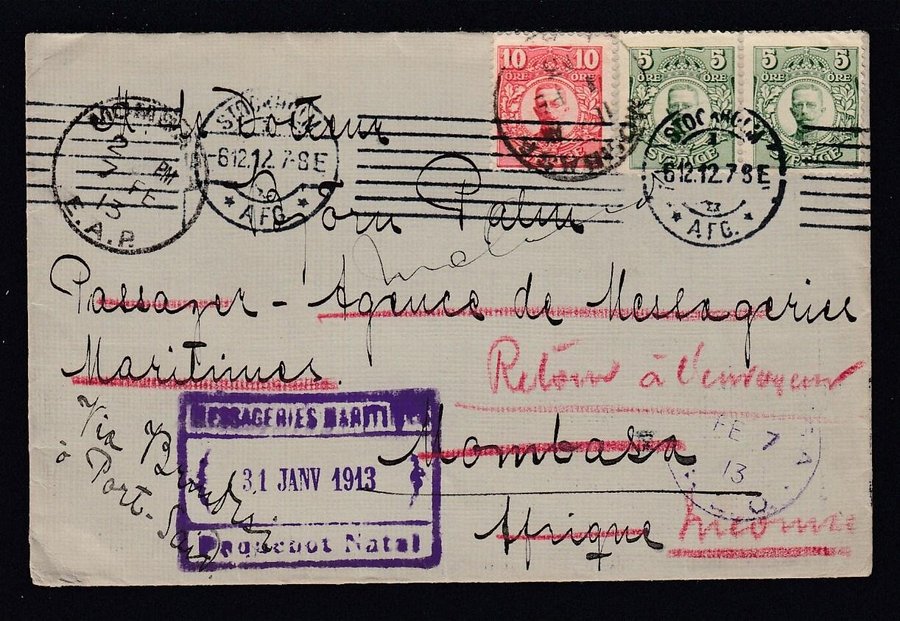 10 10
ÖRE ÖRE
5 5
ÖRE ÖRE
SVERIGE
5 5
ÖRE ÖRE
SVERIGE
STOCKHOLM
6 12.12.7-8 E
* AFG. *
STOCKHOLM
1
6 12.12.7-8 E
* AFG. *
PM
FE
13
E.A.P.
MOMBASA
Docteur
Jorn Palm
Passager - Agence de Messageries
Maritimes.
Retour à l'envoyeur
Via Brindisi
à Port-Said
MESSAGERIES MARITIMES
31 JANV 1913
Paquebot Natal
Mombasa
FE 7
13
Afrique
Inconnu